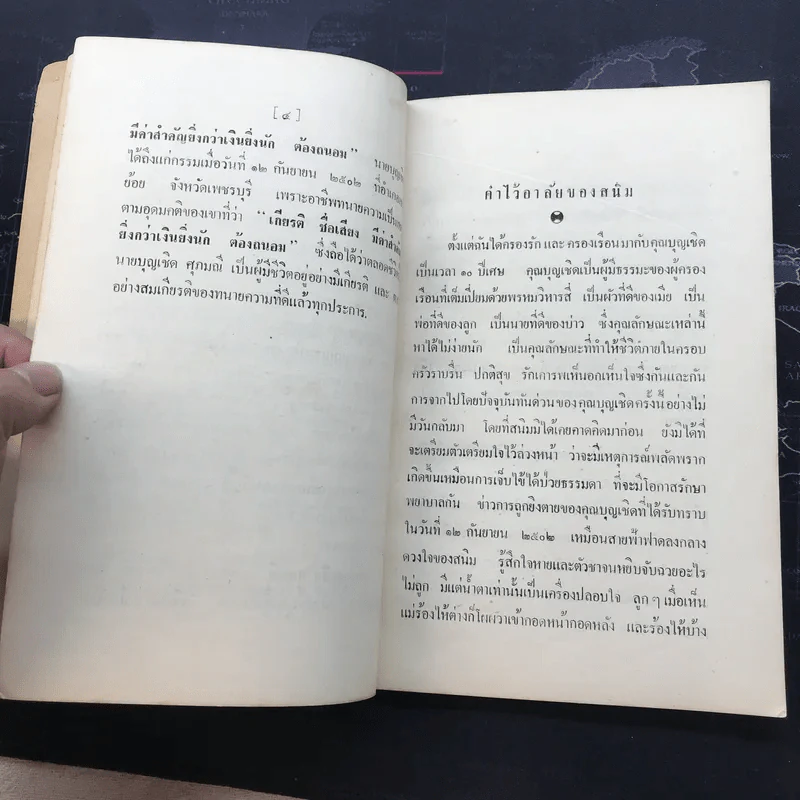 [ ๔ ]
มีค่าสำคัญยิ่งกว่าเงินยิ่งนัก ต้องถนอม" นายบุญเชิ
ได้ถึงแก่กรรมเมื่อวันที่ ๑๒ กันยายน ๒๕๐๒ ที่อำเภอ
ย้อย จังหวัดเพชรบุรี เพราะอาชีพทนายความเป็น
ตามอุดมคติของเขาที่ว่า "เกียรติ ชื่อเสียง มีค่าสำคั
ยิ่งกว่าเงินยิ่งนัก ต้องถนอม" ซึ่งถือได้ว่าตลอดชีวิต
นายบุญเชิด ศุภมณี เป็นผู้มีชีวิตอยู่อย่างมีเกียรติ และ
อย่างสมเกียรติของทนายความที่ดีแล้วทุกประการ.
คำไว้อาลัยของสนิม
ตั้งแต่ฉันได้ครองรัก และครองเรือนมากับคุณบุญเชิด
เป็นเวลา ๑๐ ปีเศษ คุณบุญเชิดเป็นผู้มีธรรมะของผู้ครอง
เรือนที่เต็มเปี่ยมด้วยพรหมวิหารสี่ เป็นผัวที่ดีของเมีย เป็น
พ่อที่ดีของลูก เป็นนายที่ดีของบ่าว ซึ่งคุณลักษณะเหล่านี้
หาได้ไม่ง่ายนัก เป็นคุณลักษณะที่ทำให้ชีวิตภายในครอบ
ครัวราบรื่น ปกติสุข รักเคารพเห็นอกเห็นใจซึ่งกันและกัน
การจากไปโดยปัจจุบันทันด่วนของคุณบุญเชิดครั้งนี้อย่างไม่
มีวันกลับมา โดยที่สนิมมิได้เคยคาดคิดมาก่อน ยังมิได้ที่
จะเตรียมตัวเตรียมใจไว้ล่วงหน้า ว่าจะมีเหตุการณ์พลัดพราก
เกิดขึ้นเหมือนการเจ็บไข้ได้ป่วยธรรมดา ที่จะมีโอกาสรักษา
พยาบาลกัน ข่าวการถูกยิงตายของคุณบุญเชิดที่ได้รับทราบ
ในวันที่ ๑๒ กันยายน ๒๕๐๒ เหมือนสายฟ้าฟาดลงกลาง
ดวงใจของสนิม รู้สึกใจหายและตัวชาจนหยิบจับฉวยอะไร
ไม่ถูก มีแต่น้ำตาเท่านั้นเป็นเครื่องปลอบใจ ลูก ๆ เมื่อเห็น
แม่ร้องไห้ต่างก็โผผวาเข้ากอดหน้ากอดหลัง และร้องไห้บ้าง